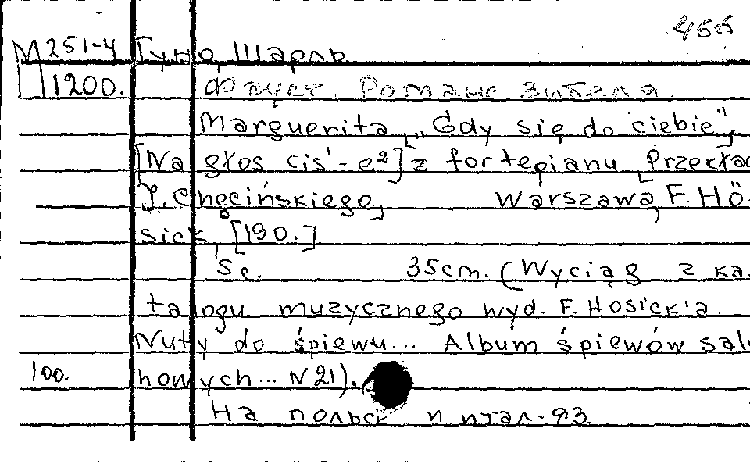 455
М 251-4 Гуно, Шарль
1200. Фауст. Романс Зибеля.
Marguerita, „Gdy się do ciebie",
[Na głos cis'-e²] z fortepianu. Przekład
J. Chęcińskiego, Warszawa, F. Hö-
sick, [190.]
5 c. 35cm. (Wyciąg z ka-
talogu muzycznego wyd. F. Hösick'a.
Nuty do śpiewu... Album śpiewów salo-
100. nowych... N 21).
На польск и итал. яз.